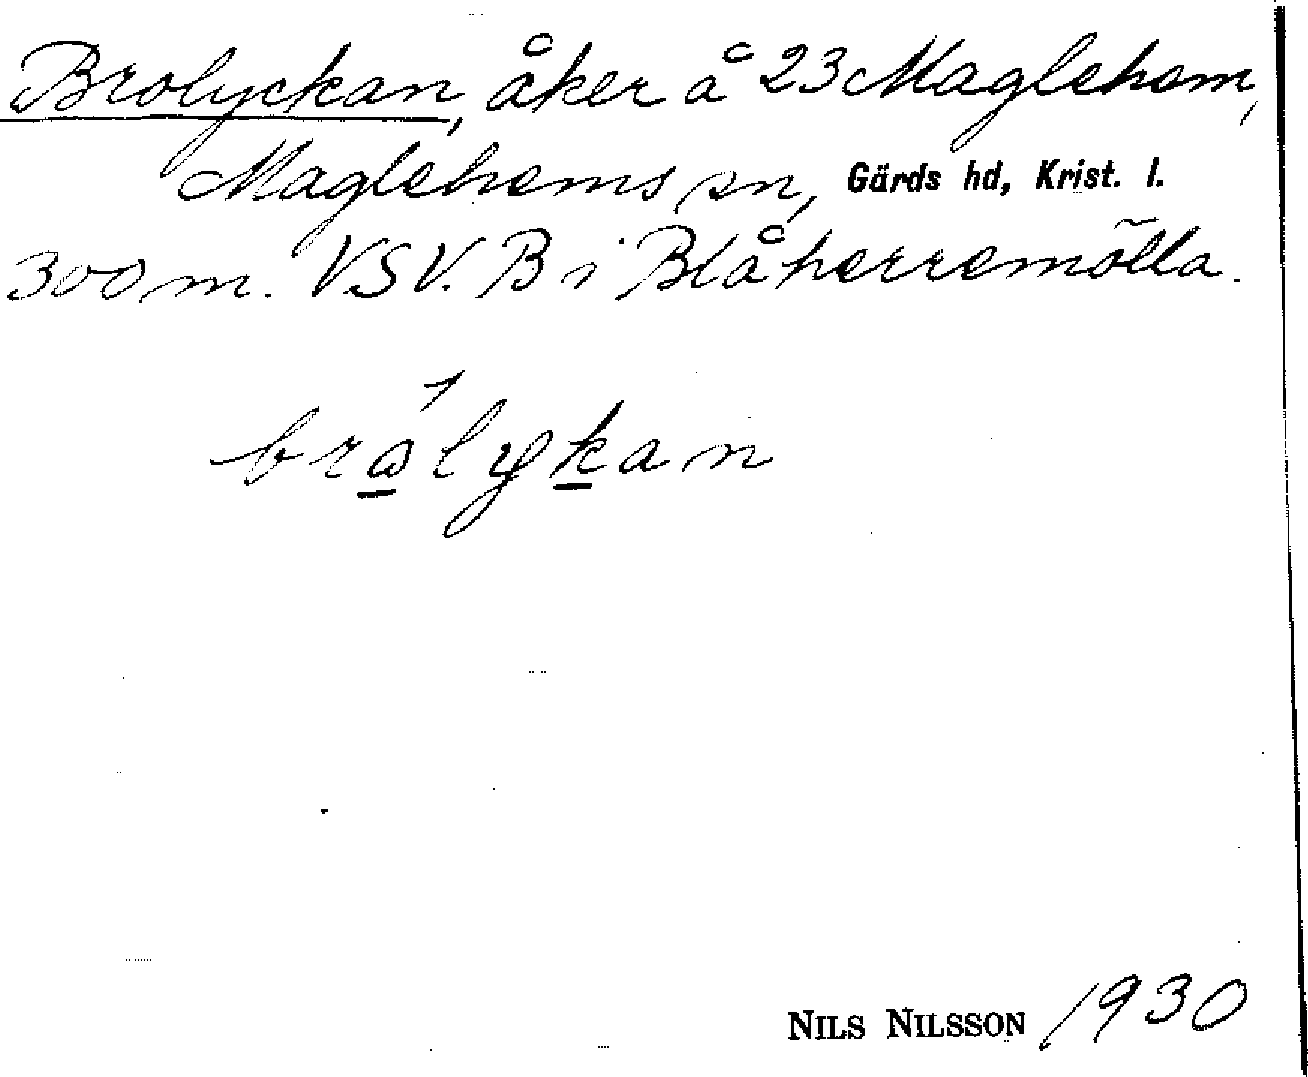 Brolyckan, åker å 23 Maglehem,
Maglehems sn, Gärds hd, Krist. l.
300 m. VSV. B i Blåherremölla.
brɷ̲́lyk̲an
NILS NILSSON 1930